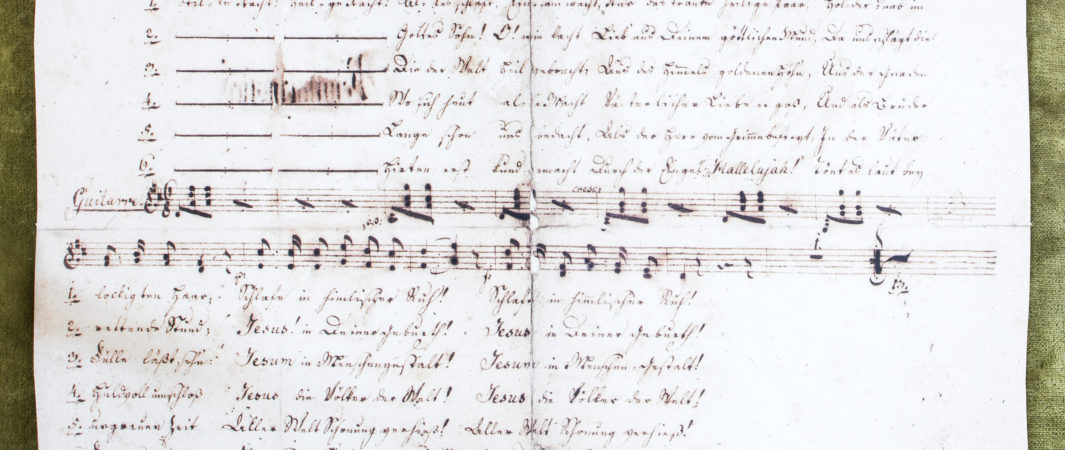 1. Stille Nacht! Heil: ge Nacht! Alles schläft, Einsam wacht, Nur das traute heilige Paar. Holder Knab im
2. Gottes Sohn! O! wie lacht Lieb aus Deinem göttlichen Mund, Da uns schlägt die
3. Die der Welt Heil gebracht; Aus des Himmels goldenen Höhn, Uns der Gnaden
4. Wo sich heut alle Macht Väterlicher Liebe ergoß, Und als Bruder
5. Lange schon uns bedacht, Als der Herr vom Grimme befreyt, In der Väter
6. Hirten erst kund gemacht Durch der Engel „Hallelujah!" Tönt es laut bey
Guitarre.
cresc:
1. lockigten Haar; Schlafe in himlischer Ruh! Schlafe in himlischer Ruh!
2. rettende Stund; Jesus! in Deiner Geburth! Jesus in Deiner Geburth!
3. Fülle läßt sehn: Jesum in Menschengestalt! Jesum in Menschen-Gestalt!
4. Huldvoll umschloß Jesus die Völker der Welt! Jesus die Völker der Welt!
5. urgrauen Zeit Aller Welt Schonung verhieß! Aller Welt Schonung verhieß!